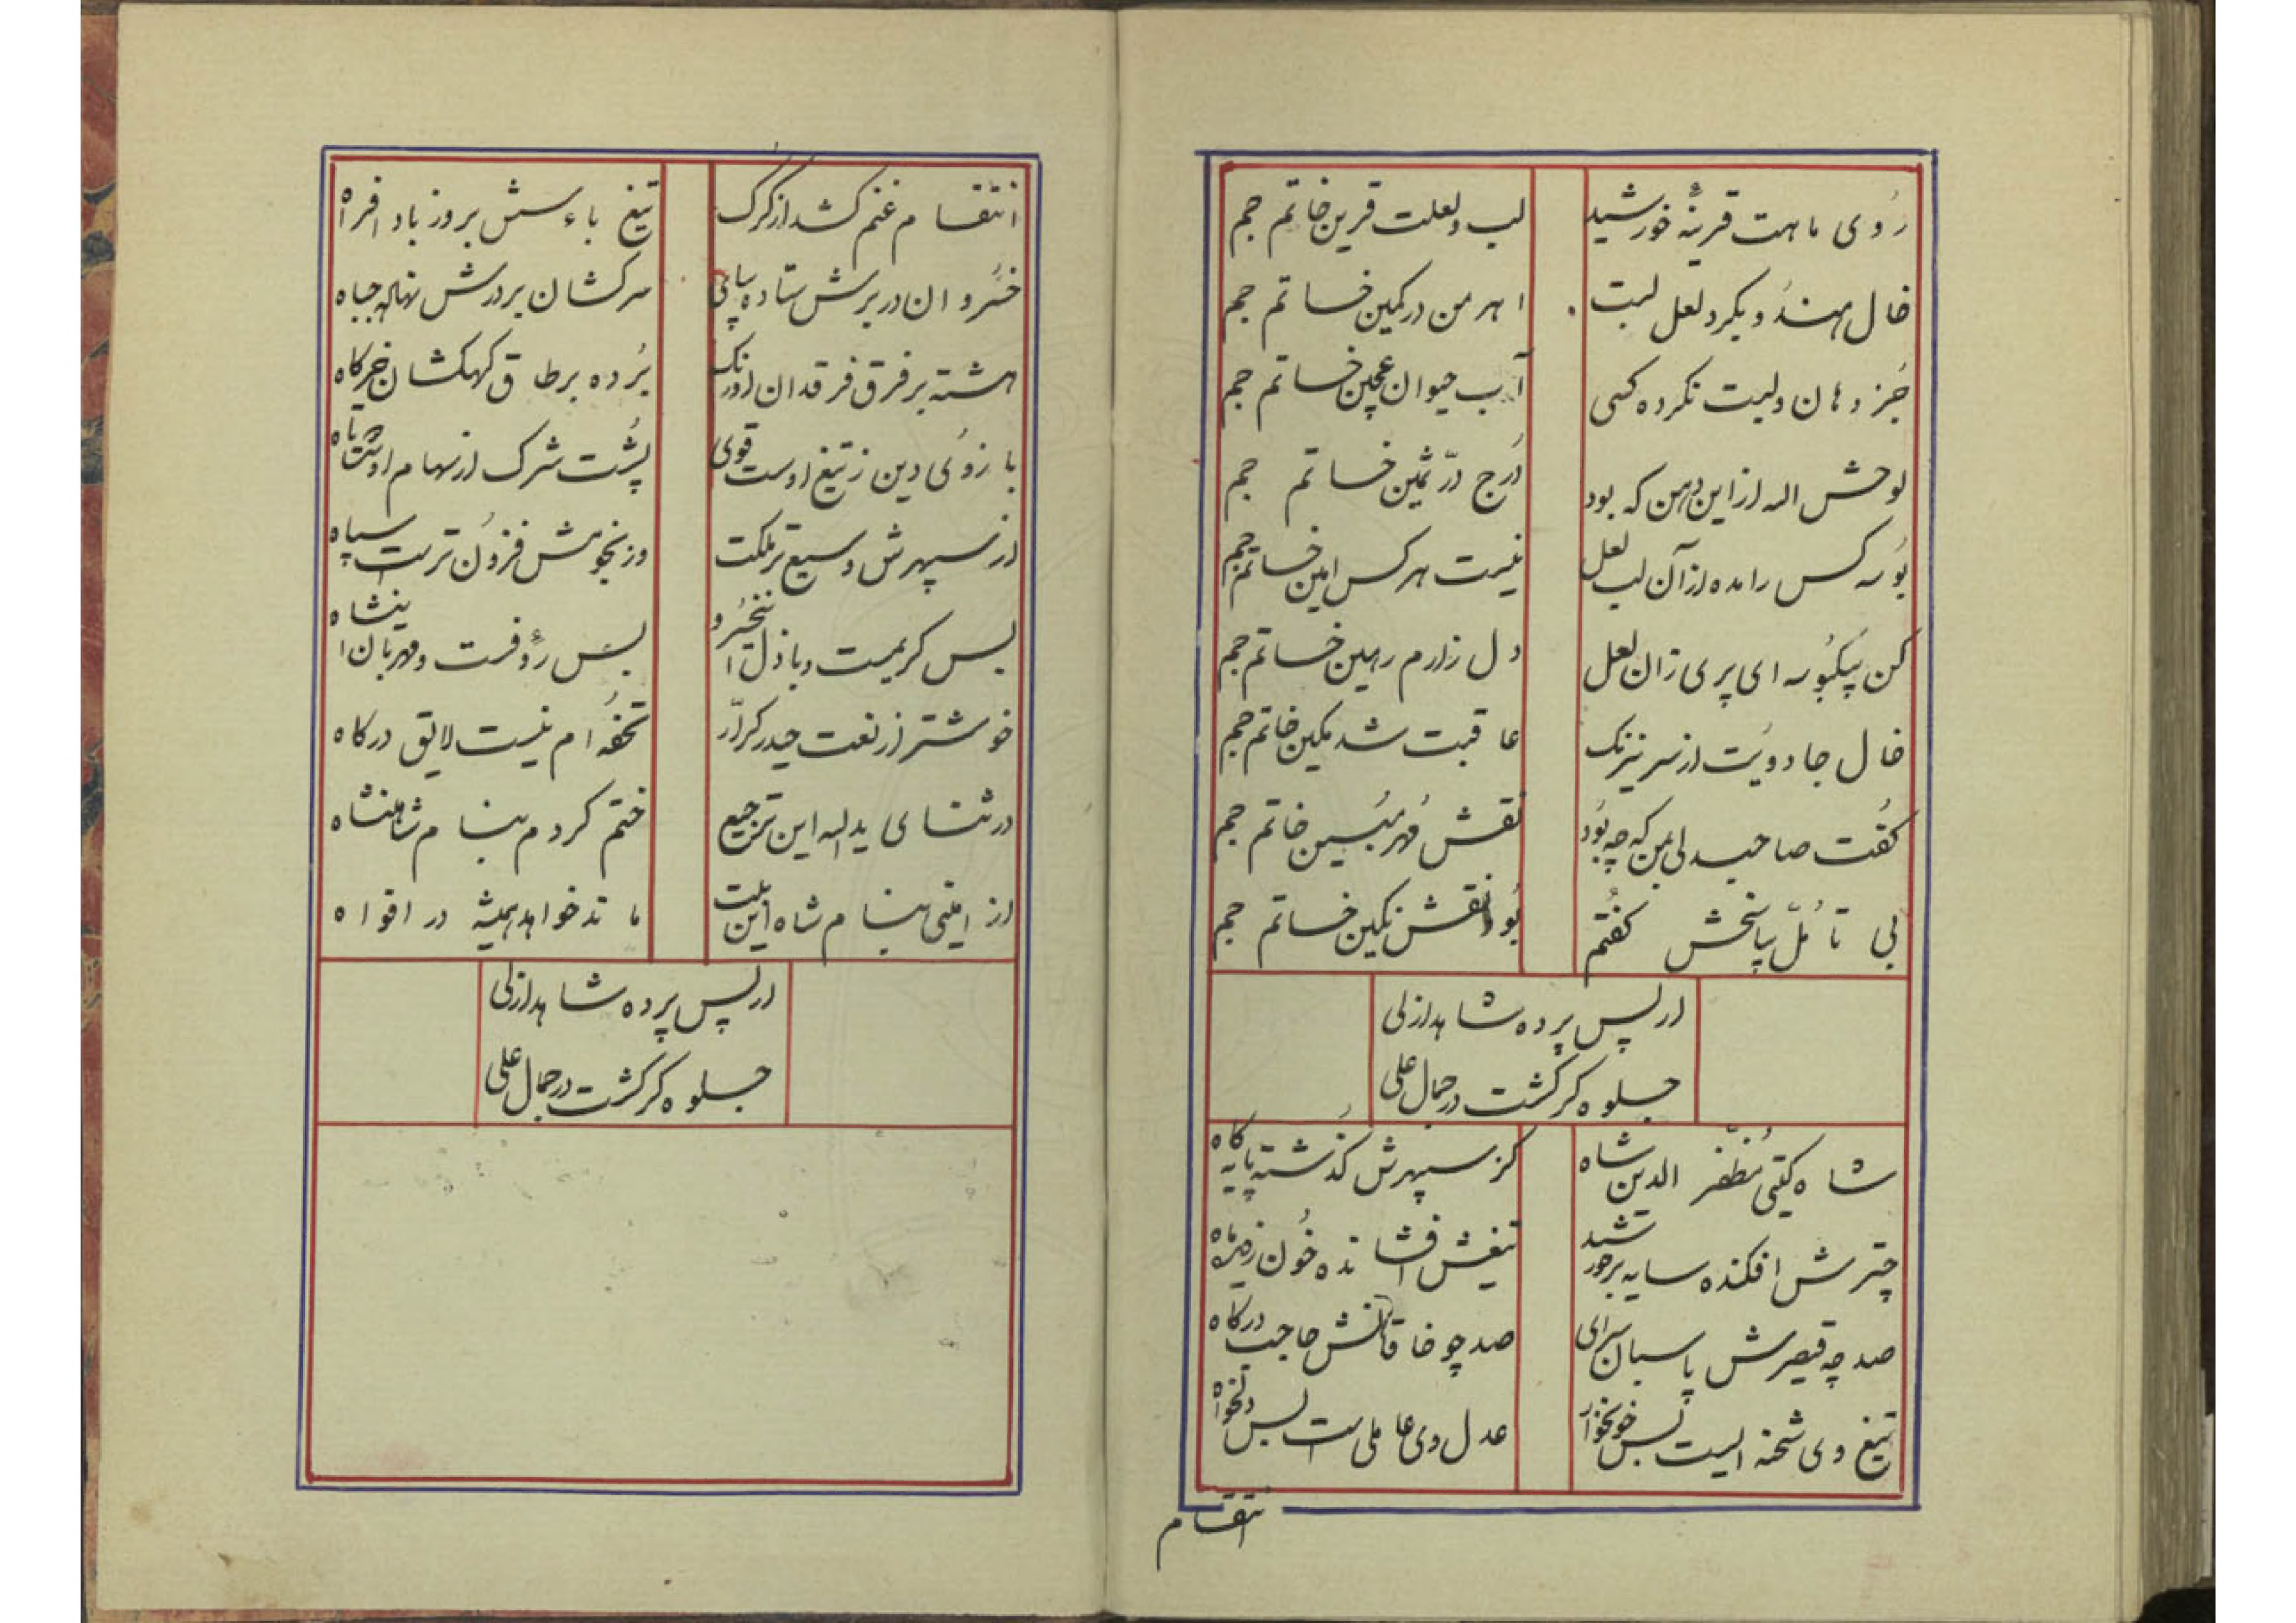 رُوی ماهت قرینهٔ خورشید لب لعلت قرین خاتم جم
خال هندُو بکرد لعل لبت اهرمن در کمین خاتم جم
جُز دهان و لبت نکرده کسی آب حیوان عجین خاتم جم
لوحش اله از این دهن که بود دُرج درّ ثمین خاتم جم
بُوسه کس را مده از آن لب لعل نیست هر کس امین خاتم جم
کن بیکبُوسه ای پری زان لعل دل زارم رهین خاتم جم
خال جادویَت از سر نیرنک عاقبت شد مکین خاتم جم
کفُت صاحبدلی بمن که چه بُود نقش مُهر مُبین خاتم جم
بی تأمُلّ بپاسخش کفُتم بُود نقش نکین خاتم جم
از پس پرده شاهد ازلی
جلوه کر کشت در جمال علی
شاه کیتی مُظفّر الدین شاه کز سپهرش کذشته پایه کاه
چترش افکنده سایه بر خورشید تیغش افشانده خُون ز
صد چه قیصرش پاسبان سرای صد چو خاقانش حاجب درکاه
تیغ وی شحنه ایست بس خونخوار عدل وی عاملی است بس دلخواه
انتقام
انتقام غنم کشد از کرک تیغ باءسش بروز باد افراه
خُسروان در برش ستاده بپای سرکشان بر درش نهاده جباه
هشته بر فرق فرقدان اورنک بُرده بر طاق کهکشان خرکاه
بازوُی دین ز تیغ اوست قوی پُشت شرک از سهام اوست دوتاه
از سپهرش وسیع تر ملکت وز نجومش فزوُن ترست سپاه
بس کریمست و باذل اینخُسرو بس رؤفست و مهربان اینشاه
خوشتر از نعت حیدر کرّار تحفُه ام نیست لایق درکاه
در ثنای یداله این ترجیع ختم کردم بنام شاهنشاه
از امینی بنام شاه این بیت ماند خواهد همیشه در افواه
از پس پرده شاهد ازلی
جلوه کر کشت در جمال علی